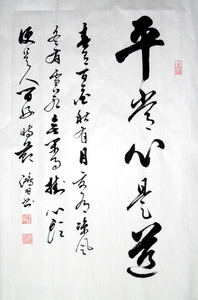 平常心是道
春有百花秋有月夏有凉风
冬有雪若无闲事挂心头
便是人间好时节